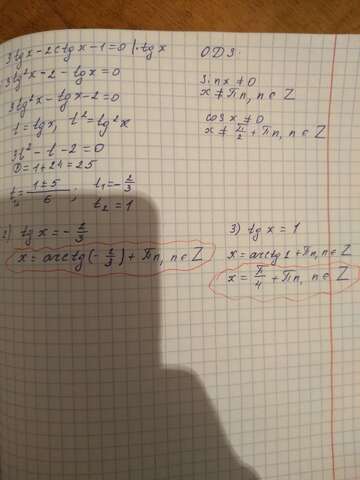 3tgx - 2ctgx - 1 = 0 | · tgx
3tg²x - 2 - tgx = 0
3tg²x - tgx - 2 = 0
t = tgx, t² = tg²x
3t² - t - 2 = 0
D = 1 + 24 = 25
t = 1 ± 5 / 6 ; t₁ = -2/3
t₂ = 1
ОДЗ.
sinx ≠ 0
x ≠ πn, n ∈ Z
cosx ≠ 0
x ≠ π/2 + πn, n ∈ Z
tgx = -2/3
x = arctg(-2/3) + πn, n ∈ Z
3) tgx = 1
x = arctg1 + πn, n ∈ Z
x = π/4 + πn, n ∈ Z